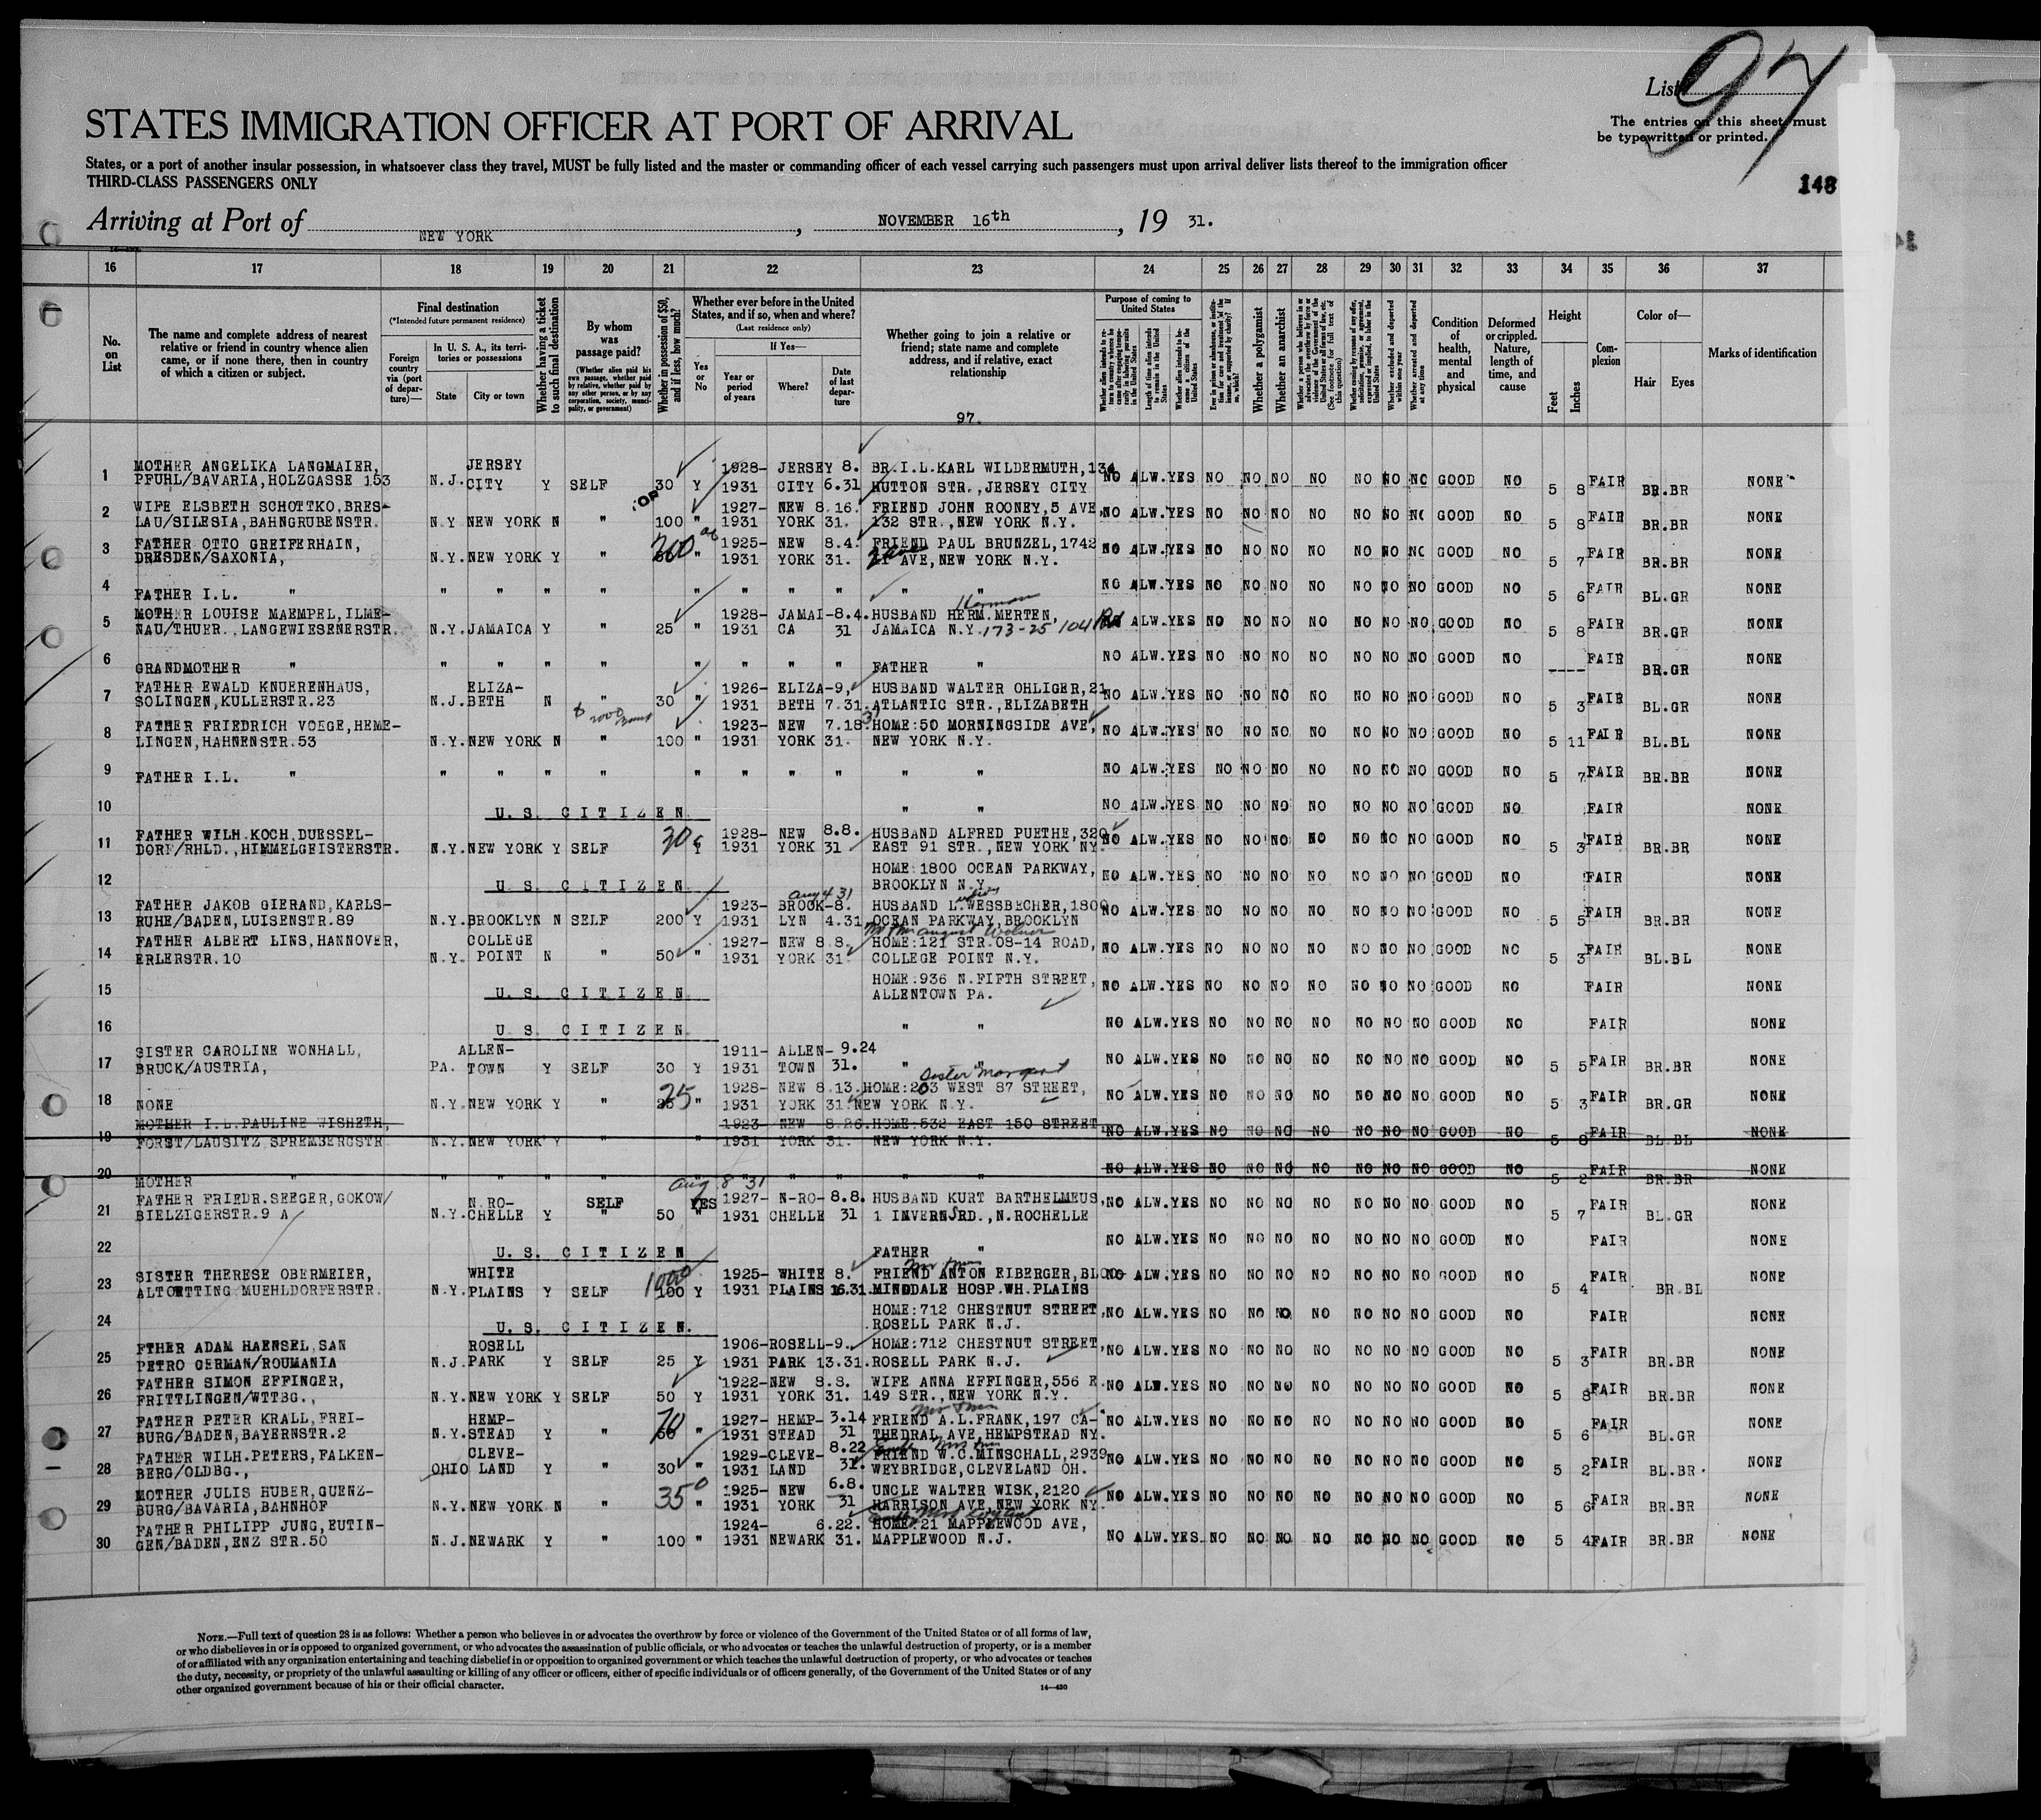 List 97
The entries on this sheet must
be typewritten or printed.
148
STATES IMMIGRATION OFFICER AT PORT OF ARRIVAL
States, or a port of another insular possession, in whatsoever class they travel, MUST be fully listed and the master or commanding officer of each vessel carrying such passengers must upon arrival deliver lists thereof to the immigration officer
THIRD-CLASS PASSENGERS ONLY
Arriving at Port of NEW YORK, NOVEMBER 16th, 19 31.
16 17 18 19 20 21 22 23 24 25 26 27 28 29 30 31 32 33 34 35 36 37
No. on List
The name and complete address of nearest relative or friend in country whence alien came, or if none there, then in country of which a citizen or subject.
Final destination
(*Intended future permanent residence)
Foreign country via (port of departure)—
In U. S. A., its territories or possessions
State
City or town
Whether having a ticket to such final destination
By whom was passage paid?
(Whether alien paid his own passage, whether paid by relative, whether paid by any other person, or by any corporation, society, municipality, or government)
Whether in possession of $50, and if less, how much?
Whether ever before in the United States, and if so, when and where?
(Last residence only)
Yes or No
If Yes—
Year or period of years
Where?
Date of last departure
Whether going to join a relative or friend; state name and complete address, and if relative, exact relationship
97.
Purpose of coming to United States
Whether a polygamist
Whether an anarchist
Condition of health, mental and physical
Deformed or crippled. Nature, length of time, and cause
Height
Feet
Inches
Complexion
Color of—
Hair
Eyes
Marks of identification
1 MOTHER ANGELIKA LANGMAIER, PFUHL/BAVARIA, HOLZGASSE 153 N.J. JERSEY CITY Y SELF 30 Y 1928-1931 JERSEY CITY 8.6.31 BR.I.L.KARL WILDERMUTH, 134 HUTTON STR., JERSEY CITY NO ALW. YES NO NO NO NO NO NO NO GOOD NO 5 8 FAIR BR.BR NONE
2 WIFE ELSBETH SCHOTTKO, BRESLAU/SILESIA, BAHNGRUBENSTR. N.Y. NEW YORK N " 100 " 1927-1931 NEW YORK 8.16.31. FRIEND JOHN ROONEY, 5 AVE, 132 STR., NEW YORK N.Y. NO ALW. YES NO NO NO NO NO NO NO GOOD NO 5 8 FAIR BR.BR NONE
3 FATHER OTTO GREIFERHAIN, DRESDEN/SAXONIA, N.Y. NEW YORK Y " " 1925-1931 NEW YORK 8.4.31. FRIEND PAUL BRUNZEL, 1742 2 AVE, NEW YORK N.Y. NO ALW. YES NO NO NO NO NO NO NO GOOD NO 5 7 FAIR BR.BR NONE
4 FATHER I.L. " " " " " " " " " " " " NO ALW. YES NO NO NO NO NO NO NO GOOD NO 5 6 FAIR BL.GR NONE
5 MOTHER LOUISE MAEMPEL, ILMENAU/THUER., LANGEWIESENERSTR. N.Y. JAMAICA Y " 25 " 1928-1931 JAMAICA 8.4.31 HUSBAND HERM. MERTEN, Herman JAMAICA N.Y. 173-25 104 Rd NO ALW. YES NO NO NO NO NO NO NO GOOD NO 5 8 FAIR BR.GR NONE
6 GRANDMOTHER " " " " " " " " " FATHER " NO ALW. YES NO NO NO NO NO NO NO GOOD NO ---- FAIR BR.GR NONE
7 FATHER EWALD KNUERENHAUS, SOLINGEN, KULLERSTR.23 N.J. ELIZABETH N " 30 " 1926-1931 ELIZABETH 9,7.31. HUSBAND WALTER OHLIGER, 21 ATLANTIC STR., ELIZABETH NO ALW. YES NO NO NO NO NO NO NO GOOD NO 5 3 FAIR BL.GR NONE
8 FATHER FRIEDRICH VOEGE, HEMELINGEN, HAHNENSTR.53 N.Y. NEW YORK N " 100 " 1923-1931 NEW YORK 7.18.31. HOME: 50 MORNINGSIDE AVE, NEW YORK N.Y. NO ALW. YES NO NO NO NO NO NO NO GOOD NO 5 11 FAIR BL.BL NONE
9 FATHER I.L. " " " " " " " " " " " " NO ALW. YES NO NO NO NO NO NO NO GOOD NO 5 7 FAIR BR.BR NONE
10 U. S. CITIZEN " " NO ALW. YES NO NO NO NO NO NO NO GOOD NO FAIR NONE
11 FATHER WILH. KOCH, DUESSELDORF/RHLD., HIMMELGEISTERSTR. N.Y. NEW YORK Y SELF Y 1928-1931 NEW YORK 8.8.31 HUSBAND ALFRED PUETHE, 320 EAST 91 STR., NEW YORK NY. NO ALW. YES NO NO NO NO NO NO NO GOOD NO 5 3 FAIR BR.BR NONE
12 U. S. CITIZEN HOME: 1800 OCEAN PARKWAY, BROOKLYN N.Y. NO ALW. YES NO NO NO NO NO NO NO GOOD NO FAIR NONE
13 FATHER JAKOB GIERAND, KARLSRUHE/BADEN, LUISENSTR.89 N.Y. BROOKLYN N SELF 200 Y 1923-1931 BROOKLYN 8.4.31 Aug 4 31 HUSBAND L. WESSBECHER, 1800 OCEAN PARKWAY, BROOKLYN NO ALW. YES NO NO NO NO NO NO NO GOOD NO 5 5 FAIR BR.BR NONE
14 FATHER ALBERT LINS, HANNOVER, ERLERSTR.10 N.Y. COLLEGE POINT N " 50 " 1927-1931 NEW YORK 8.8.31. HOME: 121 STR. 08-14 ROAD, COLLEGE POINT N.Y. NO ALW. YES NO NO NO NO NO NO NO GOOD NO 5 3 FAIR BL.BL NONE
15 U. S. CITIZEN HOME: 936 N. FIFTH STREET, ALLENTOWN PA. NO ALW. YES NO NO NO NO NO NO NO GOOD NO FAIR NONE
16 U. S. CITIZEN " " NO ALW. YES NO NO NO NO NO NO NO GOOD NO FAIR NONE
17 SISTER CAROLINE WONHALL, BRUCK/AUSTRIA, PA. ALLENTOWN Y SELF 30 Y 1911-1931 ALLENTOWN 9.24 31. " " NO ALW. YES NO NO NO NO NO NO NO GOOD NO 5 5 FAIR BR.BR NONE
18 NONE N.Y. NEW YORK Y " 25 " 1928-1931 NEW YORK 8.13.31. Sister Margaret HOME: 203 WEST 87 STREET, NEW YORK N.Y. NO ALW. YES NO NO NO NO NO NO NO GOOD NO 5 3 FAIR BR.GR NONE
19 MOTHER I.L. PAULINE WISHETH, FORST/LAUSITZ SPREMBERGSTR N.Y. NEW YORK Y " " 1923-1931 NEW YORK 8.26.31. HOME: 532 EAST 150 STREET NEW YORK N.Y. NO ALW. YES NO NO NO NO NO NO NO GOOD NO 5 8 FAIR BL.BL NONE
20 MOTHER " " " " " " " " " " " NO ALW. YES NO NO NO NO NO NO NO GOOD NO 5 2 FAIR BR.BR NONE
21 FATHER FRIEDR. SEEGER, GOKOW/ BIELZIGERSTR.9 A N.Y. N.ROCHELLE Y SELF " 50 YES " Aug 8 31 1927-1931 N-ROCHELLE 8.8.31 HUSBAND KURT BARTHELMEUS, 1 INVERNSRD., N.ROCHELLE NO ALW. YES NO NO NO NO NO NO NO GOOD NO 5 7 FAIR BL.GR NONE
22 U. S. CITIZEN FATHER " NO ALW. YES NO NO NO NO NO NO NO GOOD NO FAIR NONE
23 SISTER THERESE OBERMEIER, ALTOETTING MUEHLDORFERSTR. N.Y. WHITE PLAINS Y SELF 100 1000 Y 1925-1931 WHITE PLAINS 8.16.31. FRIEND ANTON EIBERGER, BLOOMINDDALE HOSP. WH. PLAINS NO ALW. YES NO NO NO NO NO NO NO GOOD NO 5 4 FAIR BR.BL NONE
24 U. S. CITIZEN. HOME: 712 CHESTNUT STREET, ROSELL PARK N.J. NO ALW. YES NO NO NO NO NO NO NO GOOD NO FAIR NONE
25 FTHER ADAM HAENSEL, SAN PETRO GERMAN/ROUMANIA N.J. ROSELL PARK Y SELF 25 Y 1906-1931 ROSELL PARK 9.13.31. HOME: 712 CHESTNUT STREET, ROSELL PARK N.J. NO ALW. YES NO NO NO NO NO NO NO GOOD NO 5 3 FAIR BR.BR NONE
26 FATHER SIMON EFFINGER, FRITTLINGEN/WTTBG., N.Y. NEW YORK Y SELF 50 Y 1922-1931 NEW YORK 8.8.31. WIFE ANNA EFFINGER, 556 E. 149 STR., NEW YORK N.Y. NO ALW. YES NO NO NO NO NO NO NO GOOD NO 5 8 FAIR BR.BR NONE
27 FATHER PETER KRALL, FREIBURG/BADEN, BAYERNSTR.2 N.Y. HEMPSTEAD Y " 70 " 1927-1931 HEMPSTEAD 3.14 31 FRIEND A.L. FRANK, 197 CATHEDRAL AVE, HEMPSTEAD NY. NO ALW. YES NO NO NO NO NO NO NO GOOD NO 5 6 FAIR BL.GR NONE
28 FATHER WILH. PETERS, FALKENBERG/OLDBG., OHIO CLEVELAND Y " 30 " 1929-1931 CLEVELAND 8.22 31. FRIEND W.C. MINSCHALL, 2939 WEYBRIDGE, CLEVELAND OH. NO ALW. YES NO NO NO NO NO NO NO GOOD NO 5 2 FAIR BL.BR. NONE
29 MOTHER JULIS HUBER, GUENZBURG/BAVARIA, BAHNHOF N.Y. NEW YORK N " 350 " 1925-1931 NEW YORK 6.8.31 UNCLE WALTER WISK, 2120 HARRISON AVE, NEW YORK NY. NO ALW. YES NO NO NO NO NO NO NO GOOD NO 5 6 FAIR BR.BR NONE
30 FATHER PHILIPP JUNG, EUTINGEN/BADEN, ENZ STR.50 N.J. NEWARK Y " 100 " 1924-1931 NEWARK 6.22.31. HOME: 21 MAPPLEWOOD AVE, MAPPLEWOOD N.J. NO ALW. YES NO NO NO NO NO NO NO GOOD NO 5 4 FAIR BR.BR NONE
NOTE.—Full text of question 28 is as follows: Whether a person who believes in or advocates the overthrow by force or violence of the Government of the United States or of all forms of law,
or who disbelieves in or is opposed to organized government, or who advocates the assassination of public officials, or who advocates or teaches the unlawful destruction of property, or is a member
of or affiliated with any organization entertaining and teaching disbelief in or opposition to organized government or which teaches the unlawful destruction of property, or who advocates or teaches
the duty, necessity, or propriety of the unlawful assaulting or killing of any officer or officers, either of specific individuals or of officers generally, of the Government of the United States or of any
other organized government because of his or their official character.
14—430